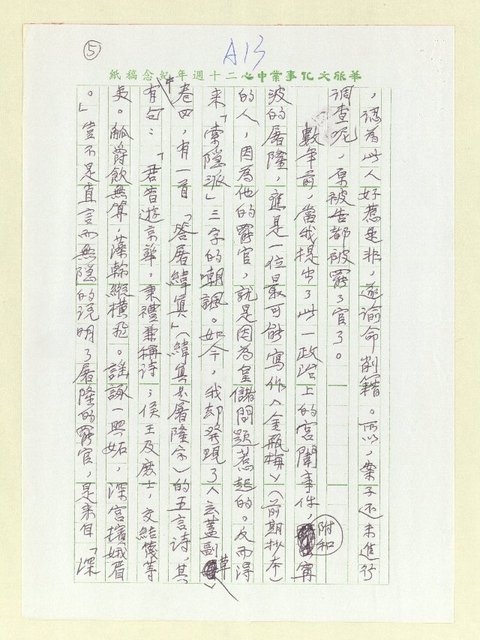 ⑤
A13
華視文化事業中心二十週年紀念稿紙
，認為此人好惹是非，遂諭命削籍。所以，案子還未進行
調查呢，原被告都被罷了官了。
數年前，當我提出了此一政治上的宮闈事件，附和寧
波的屠隆，應是一位最可能寫作《金瓶梅》（前期抄本）
的人，因為他的罷官，就是因為皇儲問題惹起的。反而得
來「索隱派」三字的嘲諷。如今，我却發現了《玄蓋副草》
卷四中，有一首「答屠緯真」（緯真是屠隆字）的五言詩，其
有句：「君昔遊京華，秉禮兼稱詩；侯王及庶士，交結羨等
夷。觚爵飲無算，藻翰縱橫飛。謠諑一興妬，深宮擯娥眉
。」豈不是直言而無隱的說明了屠隆的罷官，是來自「深